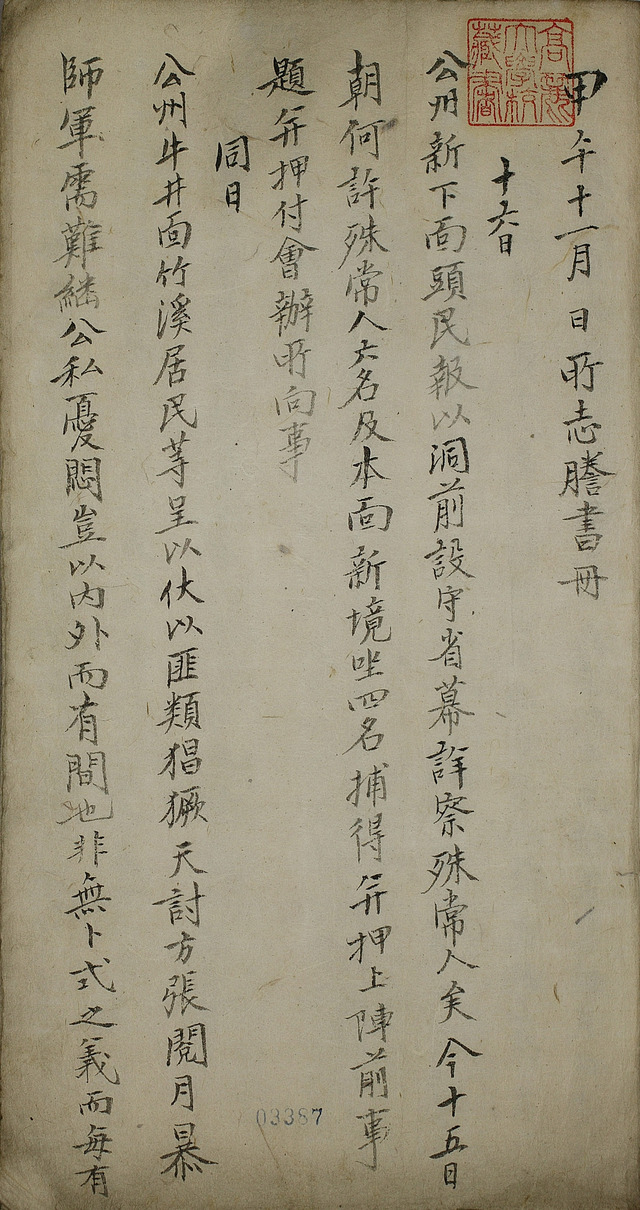 甲午十一月 日 所志謄書冊
十六日
公州新下面頭民報以洞前設守省幕詳察殊常人矣今十五日
朝何許殊常人六名及本面新境唑四名捕得并押上陣前事
題并押付會辦所向事
同日
公州牛井面竹溪居民等呈以伏以匪類猖獗天討方張閱月暴
師軍需難繼公私憂悶豈以內外而有間也非無卜式之義而每有
高麗大學校藏書
03387